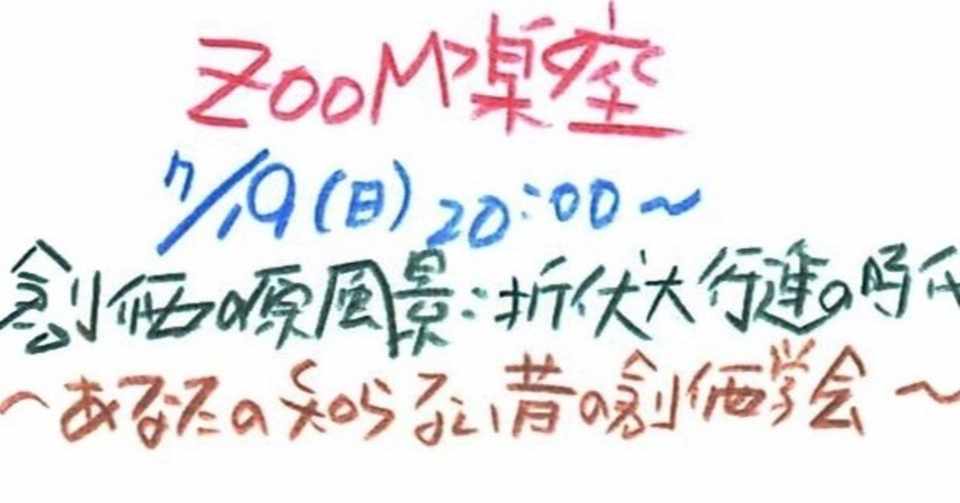 ZOOM楽座
7/19(日)20:00〜
創価の原風景:折伏大行進の時代
〜あなたの知らない昔の創価学会〜